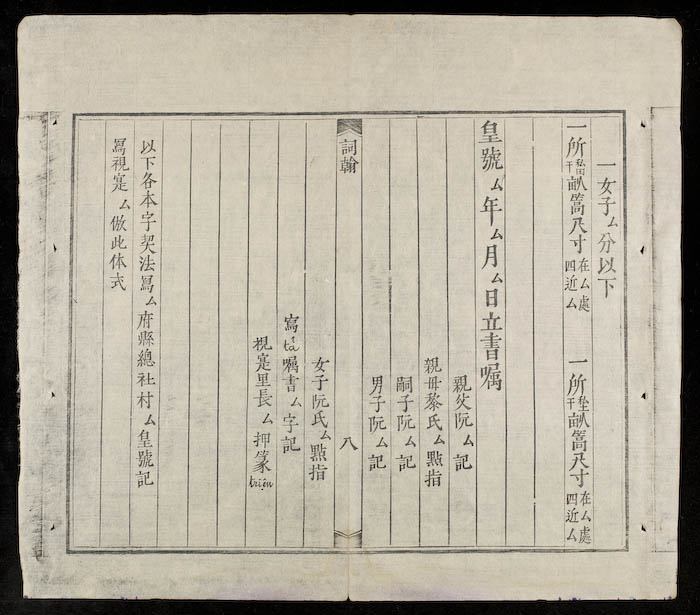 一女子厶分以下
一所干畝篙尺寸在厶處四近厶 一所干畝篙尺寸在厶處四近厶
皇號厶年厶月厶日立書嘱
親父阮厶記
親母黎氏厶點指
嗣子阮厶記
男子阮厶記
詞翰 八
女子阮氏厶點指
寫tả嘱書厶字記
視寔里長厶押篆triện
以下各本字契法寫厶府縣總社村厶皇號記
寫視寔厶倣此体式